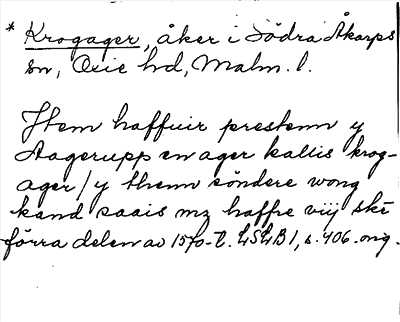 * Krogager, åker i Södra Åkarps
sn, Oxie hd, Malm. l.
Item haffuir prestenn y
Aagerupp en ager kallis krog-
ager / y thenn söndere wong
kand saais mz haffre viij ske
förra delen av 15 -t. LSLB 1, s. 406. orig.